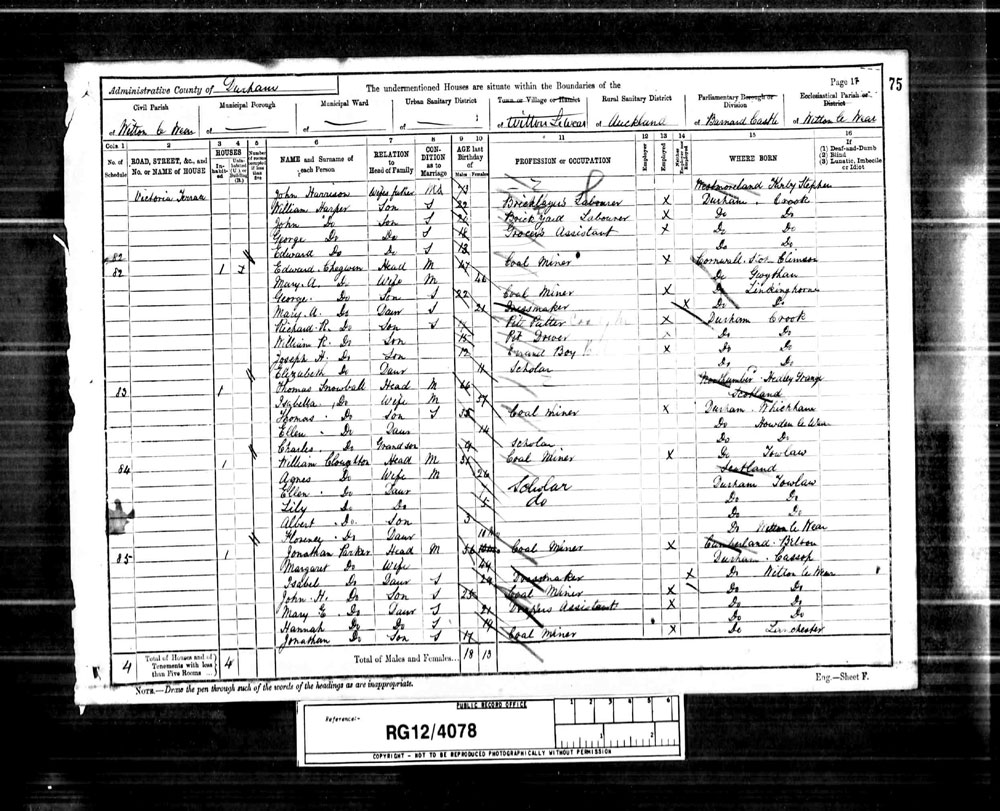 Administrative County of Durham
The undermentioned Houses are situate within the Boundaries of the
Page 17
75
Civil Parish
of Witton le Wear
Municipal Borough
of
Municipal Ward
of
Urban Sanitary District
of
Town or Village or Hamlet
of Witton le Wear
Rural Sanitary District
of Auckland
Parliamentary Borough or Division
of Barnard Castle
Ecclesiastical Parish or District
of Witton le Wear
Cols. 1 2 3 4 5 6 7 8 9 10 11 12 13 14 15 16
No. of Schedule
ROAD, STREET, &c., and No. or NAME of HOUSE
HOUSES
In-habited
Uninhabited (U.) or Building (B.)
Number of rooms occupied if less than five
NAME and Surname of each Person
RELATION to Head of Family
CON-DITION as to Marriage
AGE last Birthday of
Males
Females
PROFESSION or OCCUPATION
Employer
Employed
Neither Employer nor Employed
WHERE BORN
If
(1) Deaf-and-Dumb
(2) Blind
(3) Lunatic, Imbecile or Idiot
Victoria Terrace John Harrison Wifes father Westmoreland Kirkby Stephen
William Harper Son S 22 Bricklayers Labourer X Durham Crook
John Do Son S Brick Yard Labourer X Do Do
George Do Do S 18 Grocers Assistant X Do Do
82 Edward Do Do S 13 Do Do
82 1 Edward Chegwin Head M 47 Coal Miner X Cornwall Climson
Mary A. Do Wife M 46 Do
George Do Son S 22 Coal Miner X Do Linkinghorne
Mary A. Do Daur S 21 Dressmaker X Do Do
Richard R. Do Son S Pit Putter X Durham Crook
William R. Do Son 15 Pit Driver Do Do
Joseph H. Do Son Errand Boy X Do Do
Elizabeth Do Daur 11 Scholar Do Do
83 1 Thomas Snowball Head M 66 Northumber Hedley Grange
Isabella Do Wife M 57 Scotland
Thomas Do Son S Coal Miner X Durham Whickham
Ellen Do Daur 14 Do Howden le Wear
Charles Do Grandson Scholar Do Do
84 1 William Cloughton Head M Coal Miner X Do Towlaw
Agnes Do Wife M 26 Scotland
Ellen Do Daur Scholar Durham Towlaw
Lily Do Do 5 do Do Do
Albert Do Son 3 Do Do
Florence Do Daur Do Witton le Wear
85 1 Jonathan Parker Head M Coal Miner X Cumberland
Margaret Do Wife Durham Cassop
Isabel Do Daur S Dressmaker X Do Witton le Wear
John H. Do Son S Coal Miner X Do Do
Mary E. Do Daur S 21 Drapers Assistant X Do Do
Hannah Do Do S 19 Do Do
Jonathan Do Son S 17 Coal Miner X Do Lanchester
4 Total of Houses and of Tenements with less than Five Rooms 4 Total of Males and Females... 18 13
NOTE.—Draw the pen through such of the words of the headings as are inappropriate.
Eng.—Sheet F.
PUBLIC RECORD OFFICE
Reference:-
RG12/4078
1 2 3 4 5 6
1 2
COPYRIGHT - NOT TO BE REPRODUCED PHOTOGRAPHICALLY WITHOUT PERMISSION